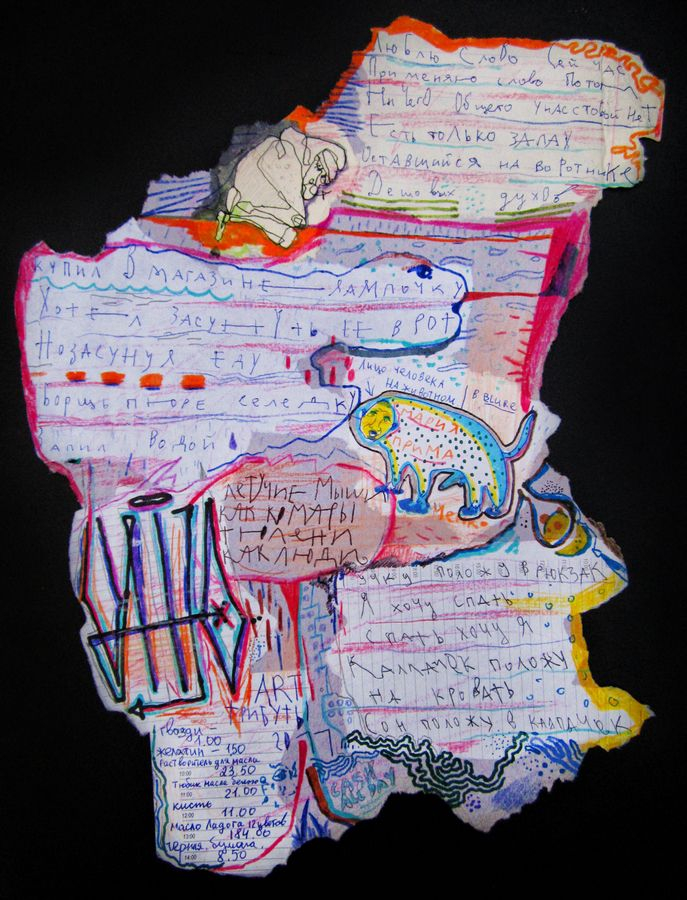 Люблю слово сейчас
Применяю слово потом
Ничего общего у них с тобой нет
Есть только запах
Оставшийся на воротнике
Дешовых духов
Купил в магазине лампочку
Хотел засунуть её в рот
Но засунул еду
Борщь пюре селедку
Запил водой
лицо человека
на животном
в Blure
Мария
Прима
Ченко
Летучие мыши
как комары
тюлени
как люди
учку положу в рюкзак
Я хочу спать
Спать хочу я
Калпачок положу
на кровать
Сон положу в калпачок
ART
трибуть
гвозди
1.00
желатин - 150
растворитель для масла
23.50
Тюбик масла белого
21.00
кисть
11.00
масло Ладога 12 цветов
184.00
черная бумага
8.50
CASH
ALL DAY